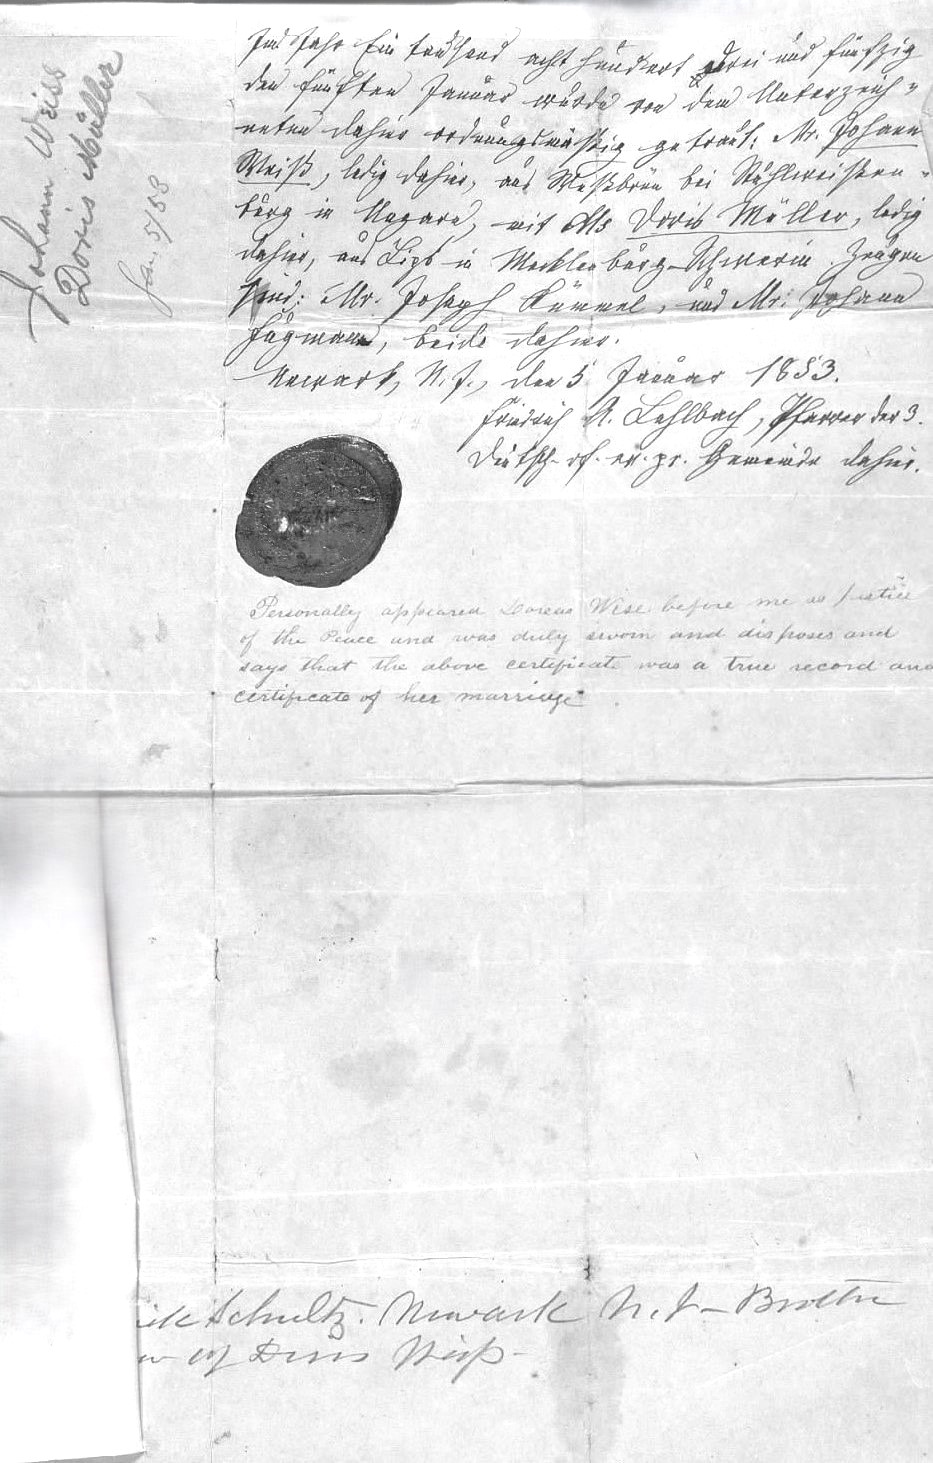 Johann Weiss
Doris Müller
Jan. 5/53
Im Jahr Ein tausend acht hundert drei und fünfzig
den fünften Januar wurde von dem Unterzeich-
neten dahier ordnungsmäßig getraut: Mr. Johann
Weiß, ledig dahier, aus bei Stuhlweißen-
burg in Ungarn, mit Ms Doris Müller, ledig
dahier, aus in Mecklenburg-Schwerin. Zeugen
sind: Mr. Joseph Kümmel, und Mr. Johann
Fugmann, beide dahier.
Newark, N. J., den 5 Januar 1853.
Friedrich A. Lehlbach, Pfarrer der 3.
Deutsch. rf. ev. pr. Gemeinde dahier.
Personally appeared Doreas Wise before me as Justice
of the Peace and was duly sworn and disposes and
says that the above certificate was a true record and
certificate of her marriage
Schultz. Newark N. J- Brother
of Doris Weiss-